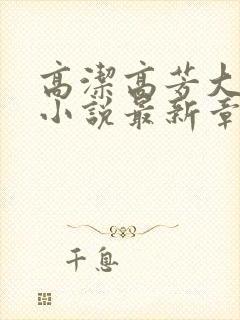 高潔高芳大
小説最新章
千息